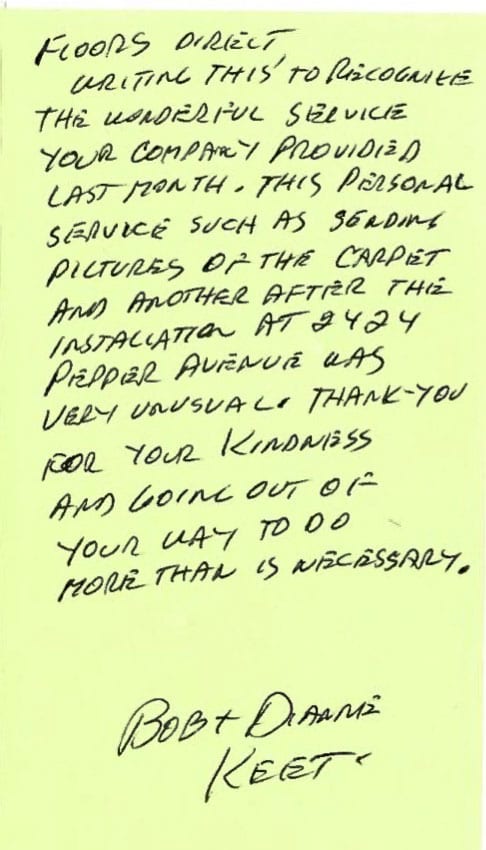 FLOORS DIRECT,
WRITING THIS TO RECOGNIZE
THE WONDERFUL SERVICE
YOUR COMPANY PROVIDIED
LAST MONTH. THIS PERSONAL
SERVICE SUCH AS SENDING
PICTURES OF THE CARPET
AND ANOTHER AFTER THE
INSTALLATION AT 2424
PEPPER AVENUE WAS
VERY UNUSUAL. THANK-YOU
FOR YOUR KINDNESS
AND GOING OUT OF
YOUR WAY TO DO
MORE THAN IS NECESSARY.
BOB + DIANNE
KEET